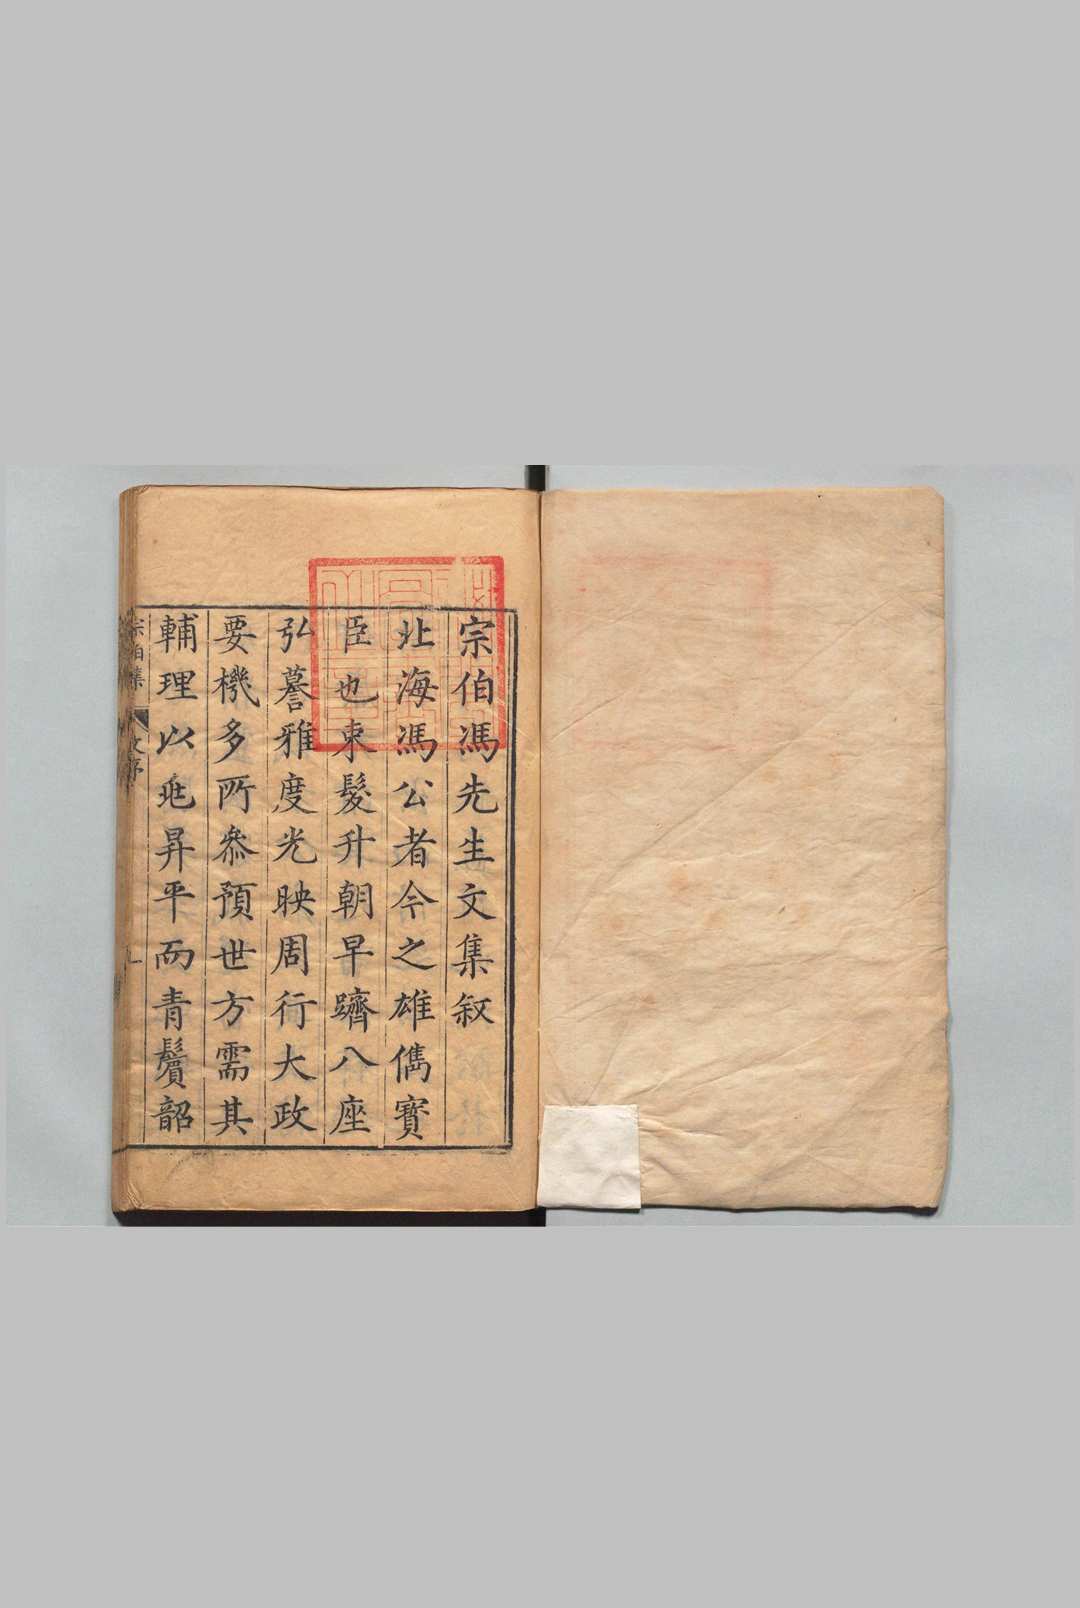 宗伯馮先生文集叙
北海馮公者今之雄儁寳
臣也束髮升朝早躋八座
弘謩雅度光映周行大政
要機多所叅預世方需其
輔理以兆昇平而青鬢韶
宗伯集
文序
一